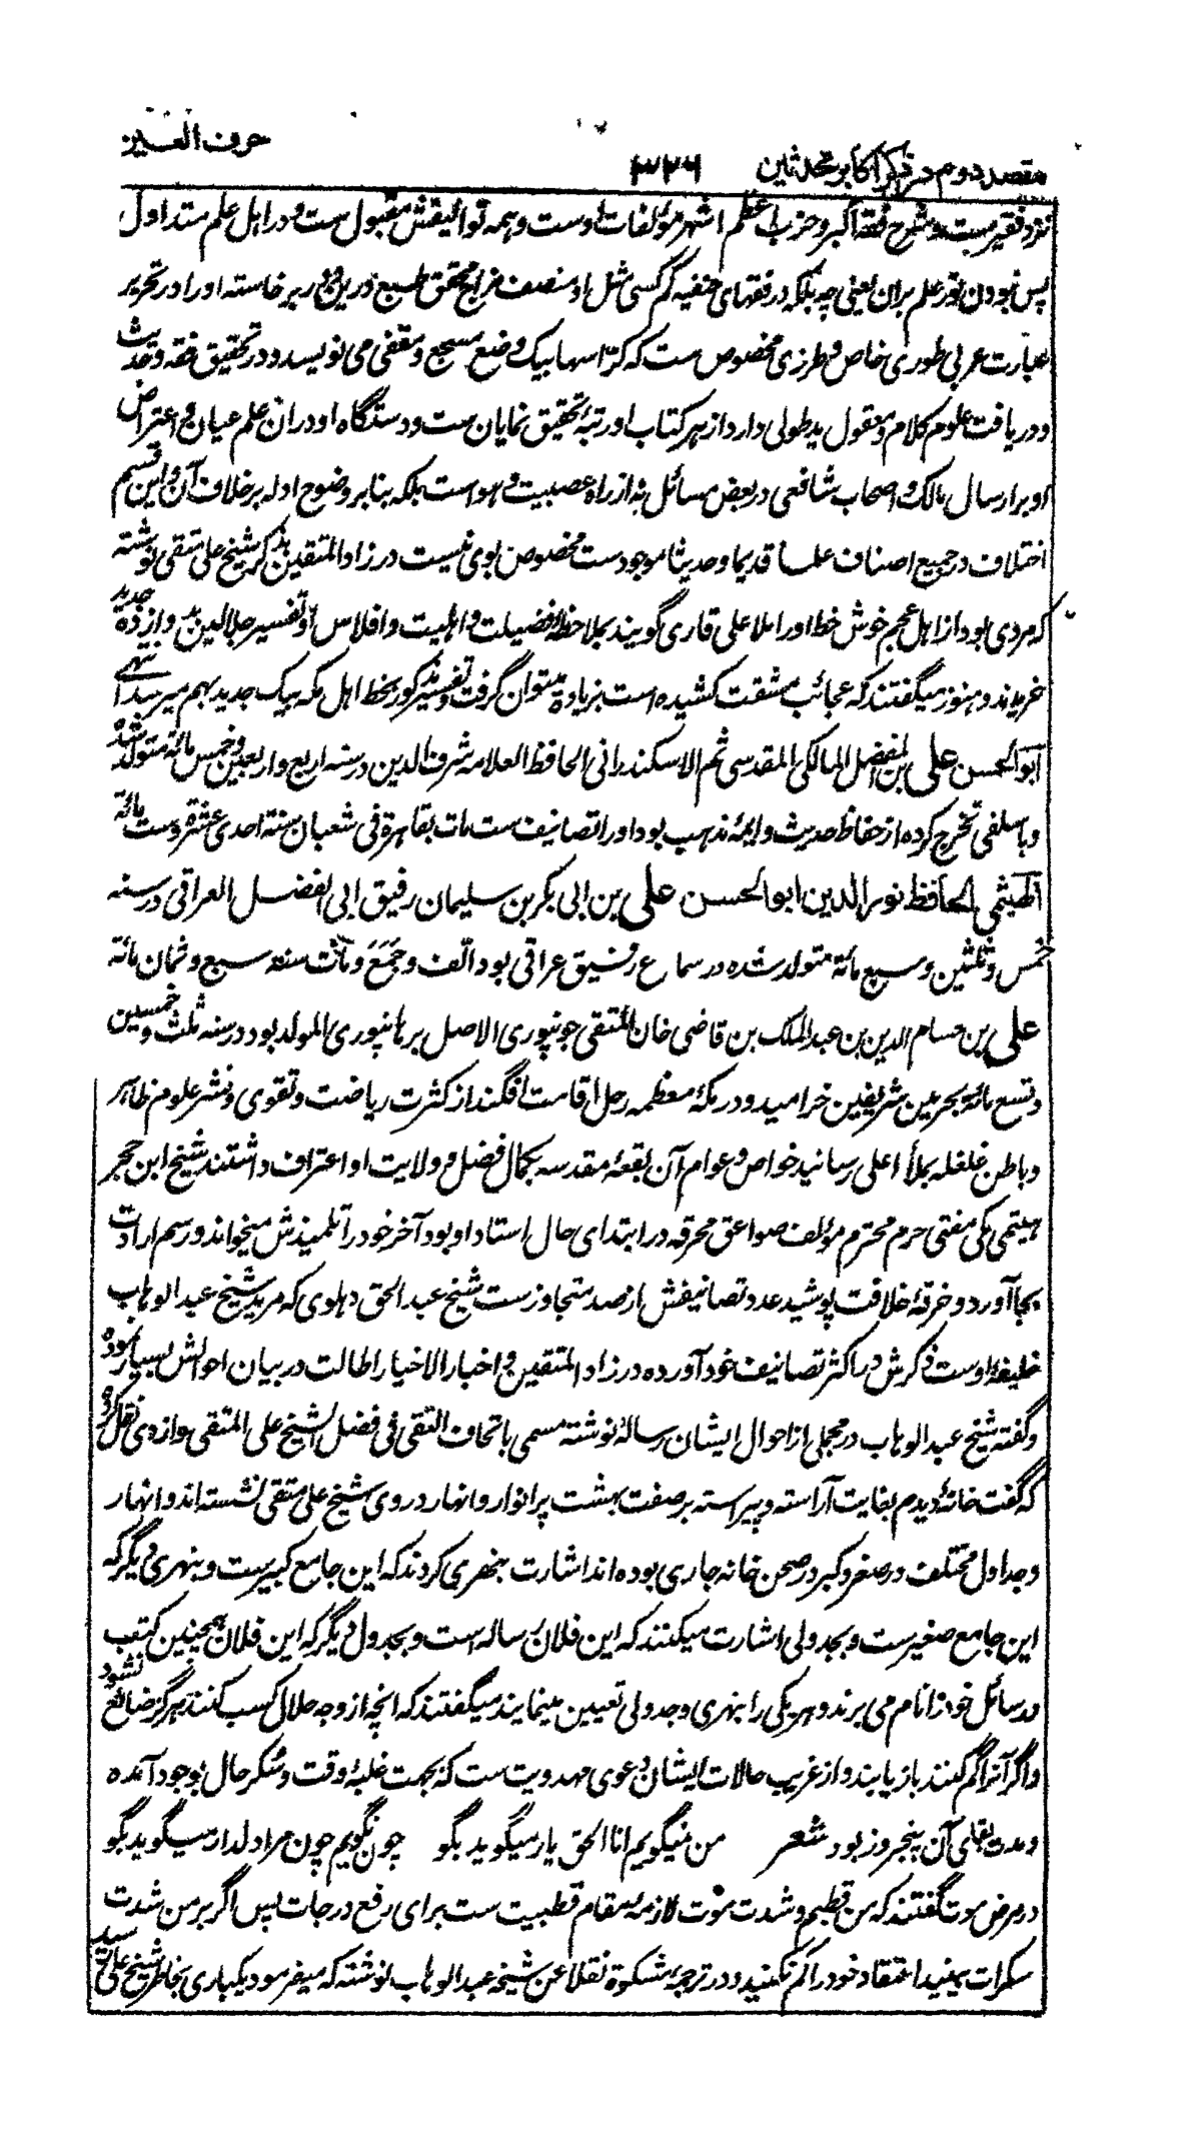 حرف العین
مقصد دوم در ذکر اکابر محدثین ۳۲۶
نزد فقیرست و شرح فقه اکبر و حزب اعظم اشهر مؤلفات اوست و همه توالیفش مقبول ست و در اهل علم متداول
پس نبودن نور علم بران یعنی چه بلکه در فقهای حنفیه کم کسی مثل او منصف مزاج محقق طبع درین دور بر خاسته او را در تحریر
عبارت عربی طوری خاص و طرزی مخصوص ست که کراسها بیک وضع مسجع و مقفی می نویسد و در تحقیق فقه و حدیث
و دریافت علوم کلام و معقول ید طولی دارد از هر کتاب او رتبهٔ تحقیق نمایان ست و دستگاه او دران علم عیان و اعتراض
او بر ارسال مالک و اصحاب شافعی در بعض مسائل نه از راه عصبیت و هواست بلکه بنابر وضوح ادله بر خلاف آن و این قسم
اختلاف در جمیع اصناف علما قدیما و حدیثا موجودست مخصوص بوی نیست در زاد المتقین بذکر شیخ علی متقی نوشته
که مردی بود از اهل عجم خوش خط او را ملا علی قاری گویند بملاحظهٔ فضیلت و اهلیت و افلاس او تفسیر جلالین بده و ازده جدید
خریدند و هنوز میگفتند که عجائب مشقت کشیده است بزیاده میتوان گرفت و تفسیر مذکور بخط اهل مکه بیک جدید بهم میرسد انتهی
ابو الحسن علی بن المفضل المالکی المقدسی ثم الاسکندرانی الحافظ العلامه شرف الدین در سنه اربع و اربعین و خمس مائة متولد شده
و با سلفی تخرج کرده از حفاظ حدیث و ایمهٔ مذهب بود او را تصانیف ست مات بقاهرة فی شعبان سنة احدی عشرة و ست مائة
الهیثمی الحافظ نور الدین ابو الحسن علی بن ابی بکر بن سلیمان رفیق ابی الفضل العراقی در سنه
خمس و ثلثین و سبع مائة متولد شده در سماع رفیق عراقی بود الّف و جَمَعَ و مات سنة سبع و ثمان مائة
علی بن حسام الدین بن عبد الملک بن قاضی خان المتقی جونپوری الاصل برهانپوری المولد بود در سنه ثلث و خمسین
و تسع مائة بحرمین شریفین خرامید و در مکهٔ معظمه رحل اقامت افگند از کثرت ریاضت و تقوی و نشر علوم ظاهر
و باطن غلغله بملأ اعلی رسانید خواص و عوام آن بقعهٔ مقدسه بکمال فضل و ولایت او اعتراف داشتند شیخ ابن حجر
هیتمی مکی مفتی حرم محترم مؤلف صواعق محرقه در ابتدای حال استاد او بود آخر خود را تلمیذش میخواند و رسم ارادت
بجا آورد و خرقهٔ خلافت پوشید عدد تصانیفش از صد متجاوزست شیخ عبد الحق دهلوی که مرید شیخ عبد الوهاب
خلیفهٔ اوست ذکرش در اکثر تصانیف خود آورده در زاد المتقین و اخبار الاخیار اطالت در بیان احوالش بسیار نموده
و گفته شیخ عبد الوهاب در مجمل از احوال ایشان رسالهٔ نوشته مسمی باتحاف التقی فی فضل الشیخ علی المتقی و از وی نقل کرده
که گفت خانهٔ دیدم بغایت آراسته و پیراسته بر صفت بهشت پر انوار و انهار در وی شیخ علی متقی نشسته اند و انهار
و جداول مختلف در صغر و کبر در صحن خانه جاری بوده اند اشارت بنهری کردند که این جامع کبیرست و بنهری دیگر که
این جامع صغیرست و بجدولی اشارت میکنند که این فلان رساله است و بجدول دیگر که این فلان همچنین کتب
و رسائل خود را نام می برند و هر یکی را بنهری و جدولی تعیین مینمایند میگفتند که انچه از وجه حلال کسب کنند هرگز ضائع نشود
و اگر آنرا گم کنند باز یابند و از غریب حالات ایشان دعوی مهدویت ست که بجهت غلبهٔ وقت و سکر حال بوجود آمده
و مدت بقای آن پنجروز بود شعر من نمیگویم انا الحق یار میگوید بگو چون نگویم چون مرا دلدار میگوید بگو
در مرض موت گفتند که من قطبم و شدت موت لازمهٔ مقام قطبیت ست برای رفع درجات پس اگر بر من شدت
سکرات بینید اعتقاد خود را کم نکنید و در ترجمهٔ مشکوة نقلا عن شیخه عبد الوهاب نوشته که میفرمود یکباری بخاطر شیخ علی